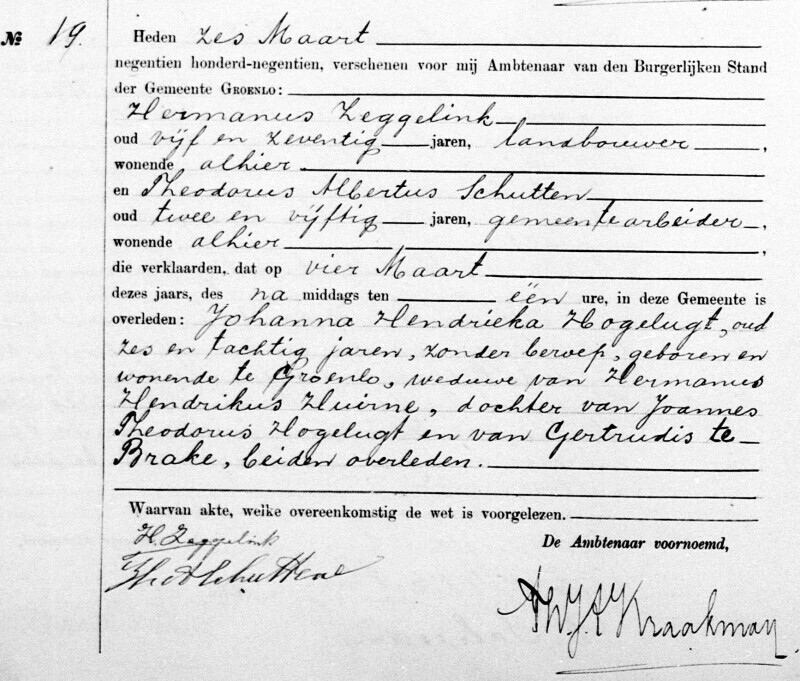 № 19. Heden zes Maart
negentien honderd-negentien, verschenen voor mij Ambtenaar van den Burgerlijken Stand
der Gemeente GROENLO:
Hermanus Zeggelink
oud vijf en zeventig jaren, landbouwer,
wonende alhier
en Theodorus Albertus Schutten
oud twee en vijftig jaren, gemeentearbeider,
wonende alhier,
die verklaarden, dat op vier Maart
dezes jaars, des na middags ten één ure, in deze Gemeente is
overleden: Johanna Hendrieka Hogelugt, oud
zes en tachtig jaren, zonder beroep, geboren en
wonende te Groenlo, weduwe van Hermanus
Hendrikus Huirne, dochter van Joannes
Theodorus Hogelugt en van Gertrudis te
Brake, beiden overleden.
Waarvan akte, welke overeenkomstig de wet is voorgelezen.
H. Zeggelink
De Ambtenaar voornoemd,
Th A Schutten
Kraakman